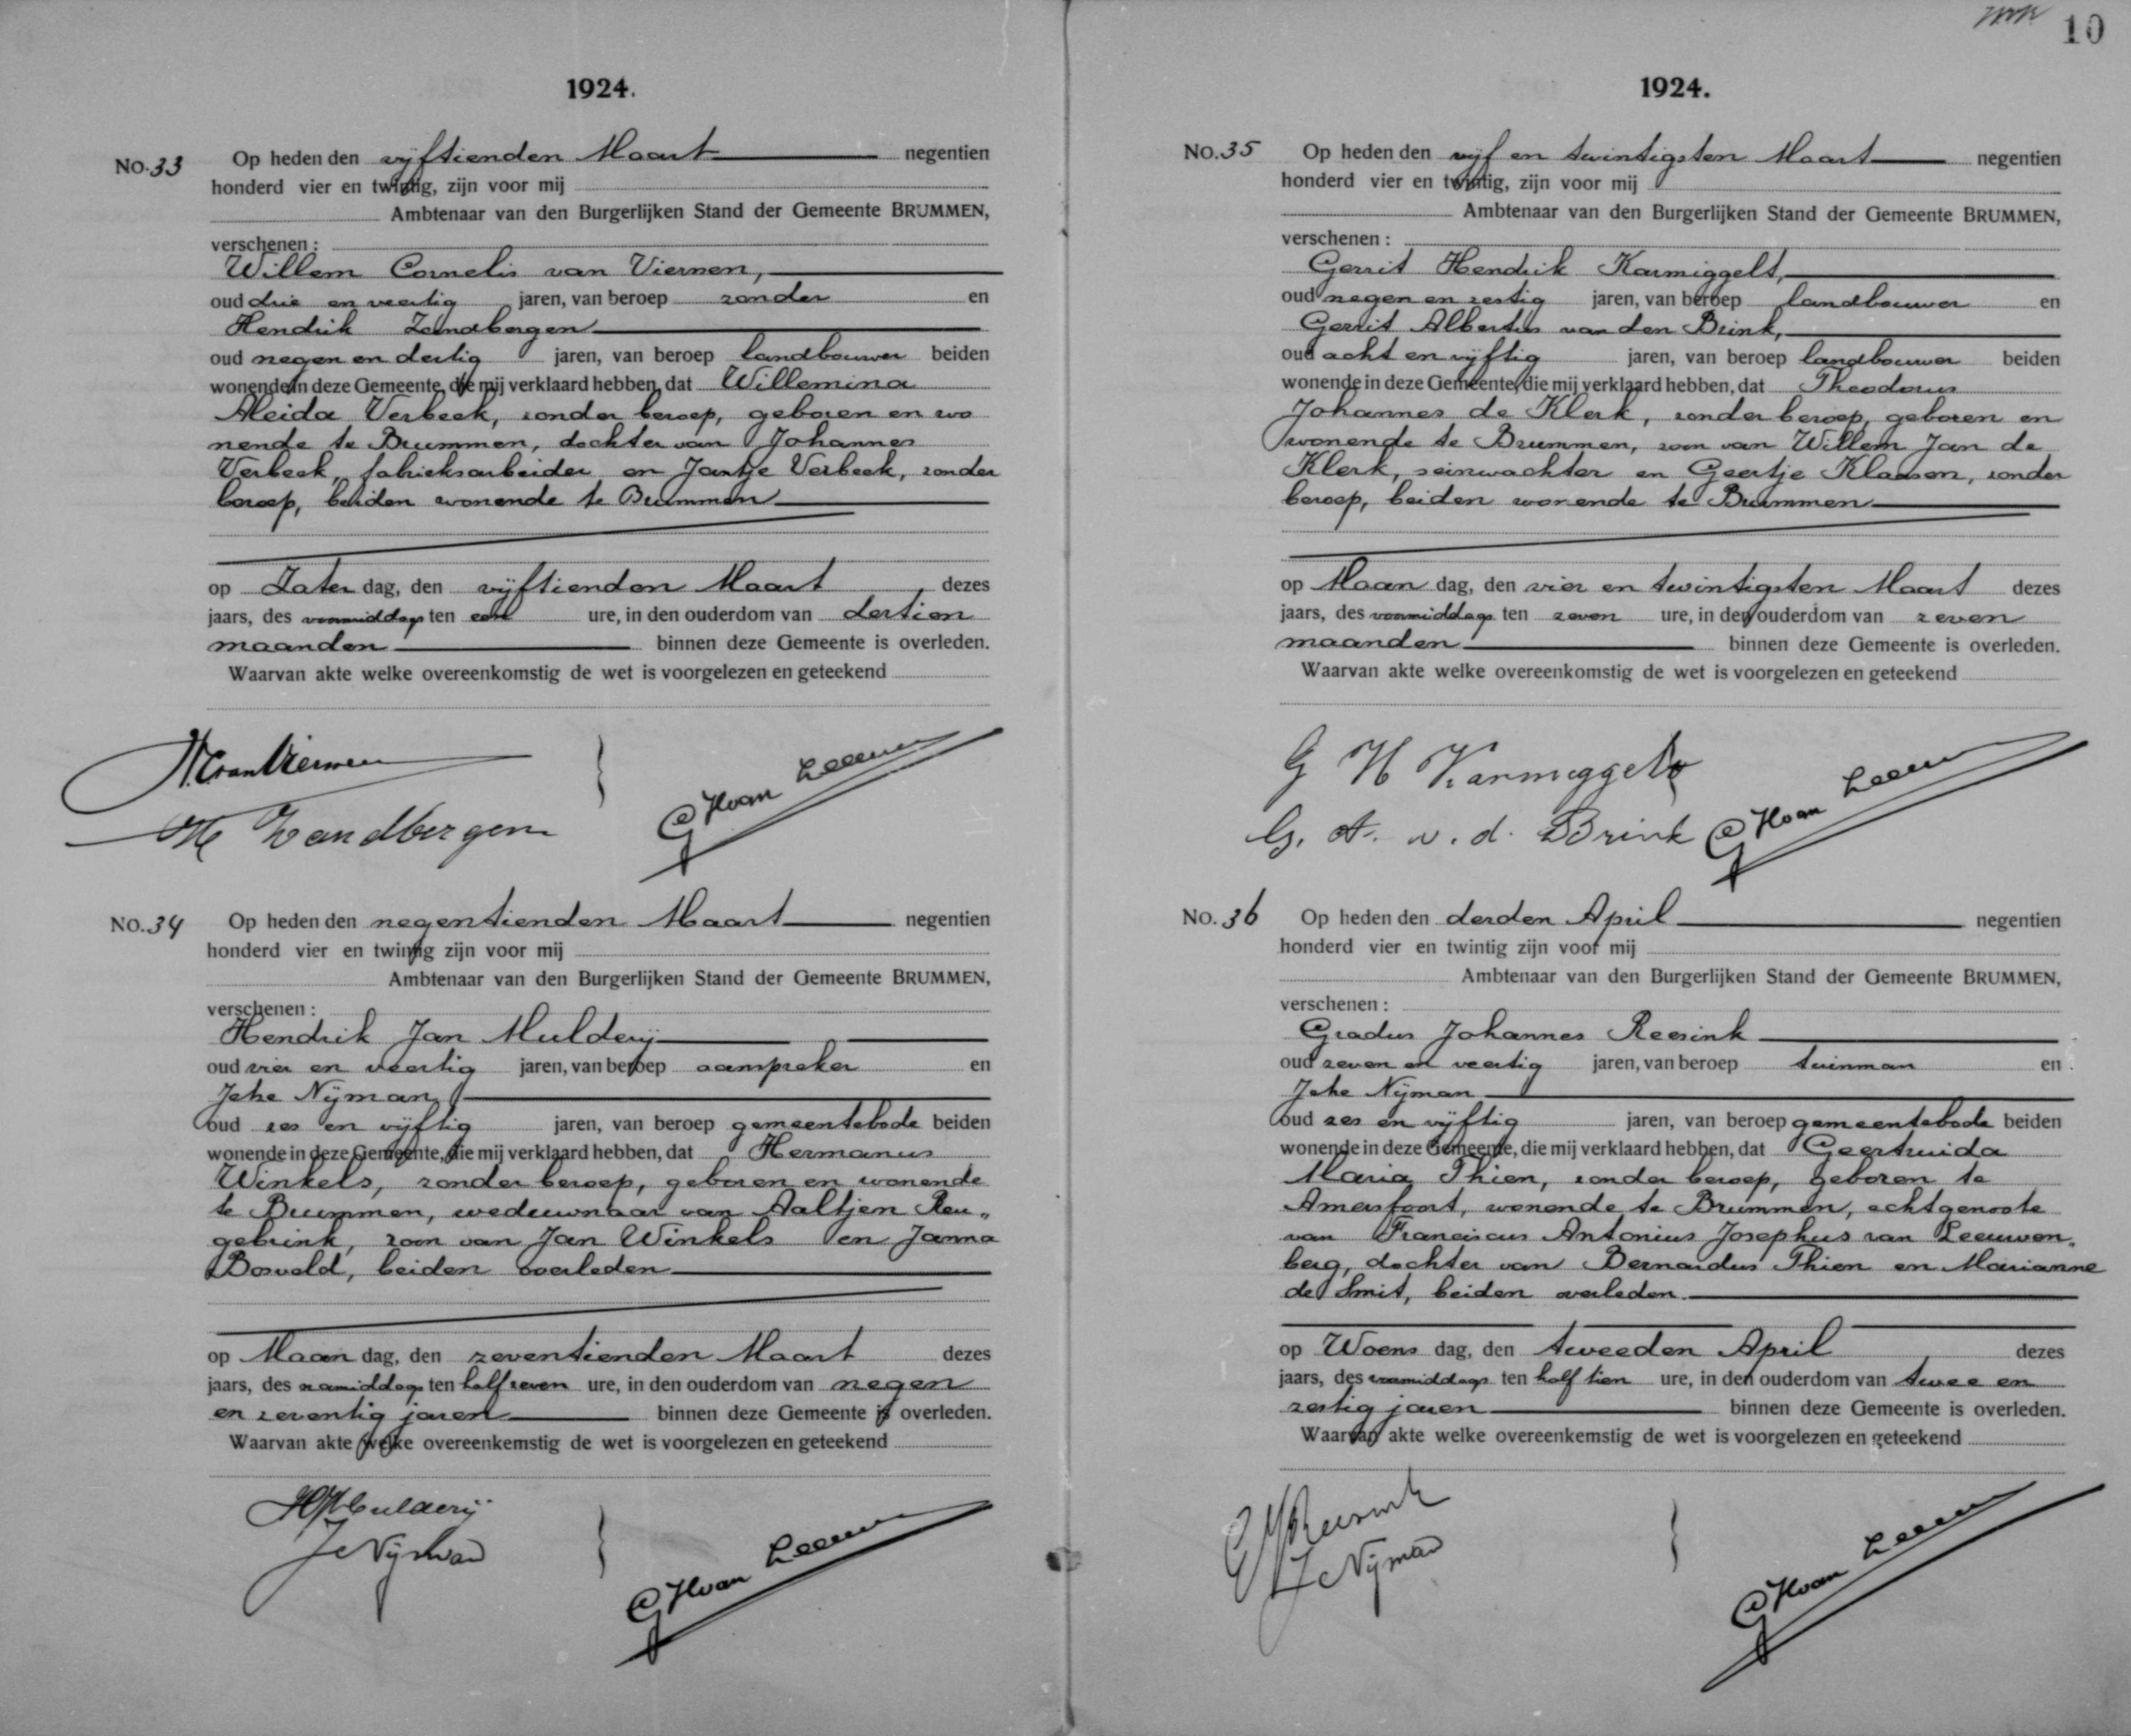 1924.
No. 33 Op heden den vijftienden Maart negentien
honderd vier en twintig, zijn voor mij
Ambtenaar van den Burgerlijken Stand der Gemeente BRUMMEN,
verschenen :
Willem Cornelis van Viersen,
oud drie en veertig jaren, van beroep zonder en
Hendrik Zandbergen
oud negen en dertig jaren, van beroep landbouwer beiden
wonende in deze Gemeente, die mij verklaard hebben, dat Willemina
Aleida Verbeek, zonder beroep, geboren en wo
nende te Brummen, dochter van Johannes
Verbeek, fabrieksarbeider en Jantje Verbeek, zonder
beroep, beiden wonende te Brummen
op Zater dag, den vijftienden Maart dezes
jaars, des voormiddags ten een ure, in den ouderdom van dertien
maanden binnen deze Gemeente is overleden.
Waarvan akte welke overeenkomstig de wet is voorgelezen en geteekend
W.C. van Viersen
H Zandbergen
GH van Leeuwen
No. 34 Op heden den negentienden Maart negentien
honderd vier en twintig zijn voor mij
Ambtenaar van den Burgerlijken Stand der Gemeente BRUMMEN,
verschenen :
Hendrik Jan Mulderij
oud vier en veertig jaren, van beroep aanspreker en
Jehe Nijman
oud zes en vijftig jaren, van beroep gemeentebode beiden
wonende in deze Gemeente, die mij verklaard hebben, dat Hermanus
Winkels, zonder beroep, geboren en wonende
te Brummen, weduwnaar van Aaltjen Reu„
gebrink, zoon van Jan Winkels en Janna
Bosveld, beiden overleden
op Maan dag, den zeventienden Maart dezes
jaars, des namiddags ten half zeven ure, in den ouderdom van negen
en zeventig jaren binnen deze Gemeente is overleden.
Waarvan akte welke overeenkemstig de wet is voorgelezen en geteekend
HJ Mulderij
J Nijman
GH van Leeuwen
10
1924.
No. 35 Op heden den vijf en twintigsten Maart negentien
honderd vier en twintig, zijn voor mij
Ambtenaar van den Burgerlijken Stand der Gemeente BRUMMEN,
verschenen :
Gerrit Hendrik Karmiggelt,
oud negen en zestig jaren, van beroep landbouwer en
Gerrit Albertus van den Brink,
oud acht en vijftig jaren, van beroep landbouwer beiden
wonende in deze Gemeente, die mij verklaard hebben, dat Theodorus
Johannes de Klerk, zonder beroep, geboren en
wonende te Brummen, zoon van Willem Jan de
Klerk, seinwachter en Geertje Klaasen, zonder
beroep, beiden wonende te Brummen
op Maan dag, den vier en twintigsten Maart dezes
jaars, des voormiddags ten zeven ure, in den ouderdom van zeven
maanden binnen deze Gemeente is overleden.
Waarvan akte welke overeenkomstig de wet is voorgelezen en geteekend
G H Karmiggelt
G. A. v. d. Brink
GH van Leeuwen
No. 36 Op heden den derden April negentien
honderd vier en twintig zijn voor mij
Ambtenaar van den Burgerlijken Stand der Gemeente BRUMMEN,
verschenen :
Gradus Johannes Reesink
oud zeven en veertig jaren, van beroep tuinman en
Jehe Nijman
oud zes en vijftig jaren, van beroep gemeentebode beiden
wonende in deze Gemeente, die mij verklaard hebben, dat Geertruida
Maria Thien, zonder beroep, geboren te
Amersfoort, wonende te Brummen, echtgenoote
van Franciscus Antonius Josephus van Leeuwen„
berg, dochter van Bernardus Thien en Marianne
de Smit, beiden overleden.
op Woens dag, den tweeden April dezes
jaars, des voormiddags ten half tien ure, in den ouderdom van twee en
zestig jaren binnen deze Gemeente is overleden.
Waarvan akte welke overeenkemstig de wet is voorgelezen en geteekend
GJ Reesink
J Nijman
GH van Leeuwen